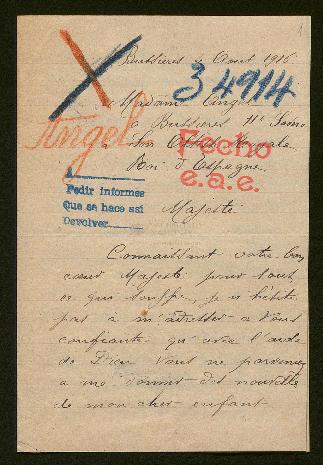 1
Bussières 4 Aout 1916
34914
Madame Angel
à Bussieres Hte Saône
à Son Altesse Royale
Roi d'Espagne
Angel
Fecho
e.a.e.
A
Pedir informes
Que se hace así
Devolver
Majesté
Connaissant votre bon
cœur Majesté pour tout
ce qui souffre, je n'hésite
pas à m'adresser a Vous
confiante qu'avec l'aide
de Dieu Vous ne parveniez
a me donner des nouvelle
de mon cher enfant